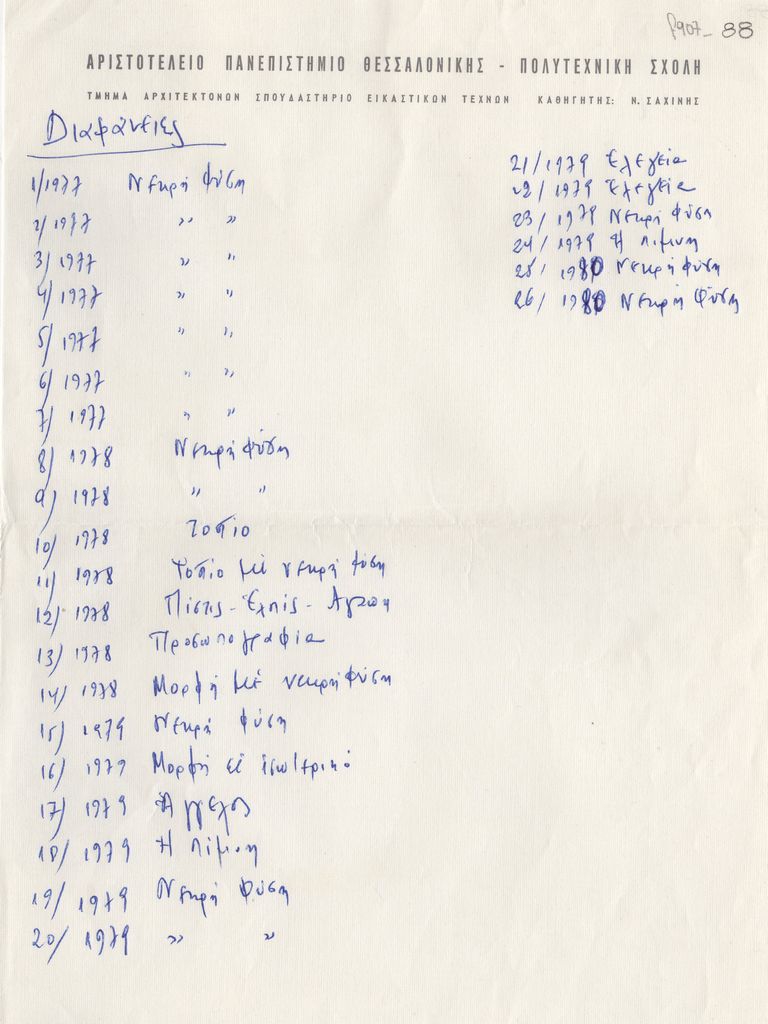 ρ907_ 88
ΑΡΙΣΤΟΤΕΛΕΙΟ ΠΑΝΕΠΙΣΤΗΜΙΟ ΘΕΣΣΑΛΟΝΙΚΗΣ - ΠΟΛΥΤΕΧΝΙΚΗ ΣΧΟΛΗ
ΤΜΗΜΑ ΑΡΧΙΤΕΚΤΟΝΩΝ ΣΠΟΥΔΑΣΤΗΡΙΟ ΕΙΚΑΣΤΙΚΩΝ ΤΕΧΝΩΝ ΚΑΘΗΓΗΤΗΣ: Ν. ΣΑΧΙΝΗΣ
Διαφάνειες
1/1977 Νεκρή φύση
2/1977 " "
3/1977 " "
4/1977 " "
5/1977 " "
6/1977 " "
7/1977 " "
8/1978 Νεκρή φύση
9/1978 " "
10/1978 Τοπίο
11/1978 Τοπίο μέ νεκρή φύση
12/1978 Πίστις - Ἐλπίς - Αγάπη
13/1978 Προσωπογραφία
14/1978 Μορφή μέ νεκρή φύση
15/1979 Νεκρή φύση
16/1979 Μορφή σέ ἐσωτερικό
17/1979 Ἄγγελος
18/1979 Η λίμνη
19/1979 Νεκρή φύση
20/1979 " "
21/1979 Ἐλεγεία
22/1979 Ἐλεγεία
23/1979 Νεκρή φύση
24/1979 Η λίμνη
25/1980 Νεκρή φύση
26/1980 Νεκρή φύση